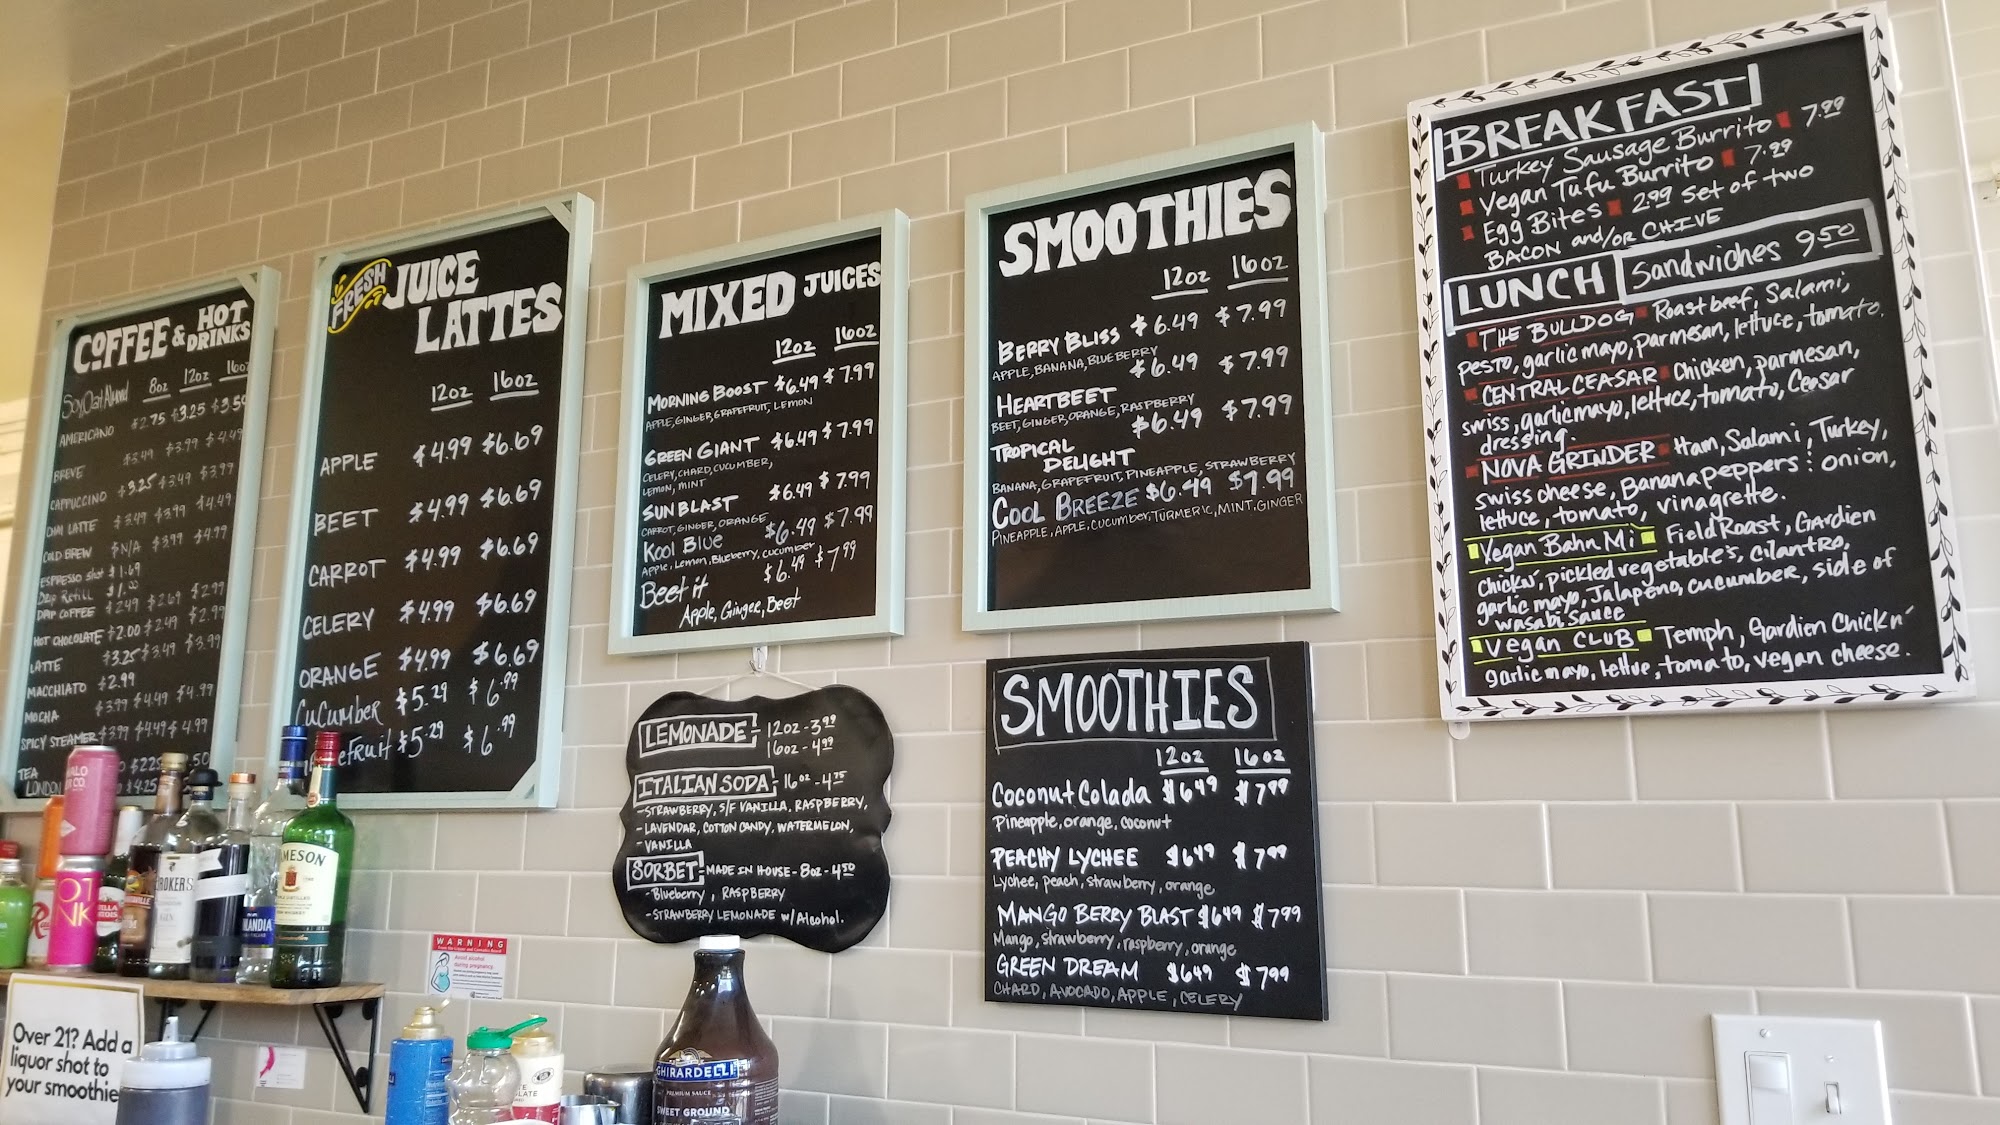 COFFEE & HOT DRINKS
8oz 12oz 16oz
AMERICANO $2.75 $3.25 $3.50
BREVE $3.49 $3.99 $4.49
CAPPUCCINO $3.25 $3.49 $3.99
CHAI LATTE $3.49 $3.99 $4.49
COLD BREW $N/A $3.99 $4.99
ESPRESSO shot $1.69
Drip Refill $1.00
DRIP COFFEE $2.49 $2.69 $2.99
HOT CHOCOLATE $2.00 $2.49 $2.99
LATTE $3.25 $3.49 $3.99
MACCHIATO $2.99
MOCHA $3.99 $4.49 $4.99
SPICY STEAMER $3.99 $4.49 $4.99
TEA
LONDON
FRESH JUICE
LATTES
12oz 16oz
APPLE $4.99 $6.69
BEET $4.99 $6.69
CARROT $4.99 $6.69
CELERY $4.99 $6.69
ORANGE $4.99 $6.69
CuCumber $5.29 $6.99
$5.29 $6.99
MIXED JUICES
12oz 16oz
MORNING BOOST $6.49 $7.99
APPLE, GINGER, GRAPEFRUIT, LEMON
GREEN GIANT $6.49 $7.99
CELERY, CHARD, CUCUMBER,
LEMON, MINT
SUN BLAST $6.49 $7.99
CARROT, GINGER, ORANGE
Kool Blue $6.49 $7.99
Apple, Lemon, Blueberry, cucumber
Beet it $6.49 $7.99
Apple, Ginger, Beet
SMOOTHIES
12oz 16oz
BERRY BLISS $6.49 $7.99
APPLE, BANANA, BLUEBERRY
HEARTBEET $6.49 $7.99
BEET, GINGER, ORANGE, RASPBERRY
TROPICAL
DELIGHT $6.49 $7.99
BANANA, GRAPEFRUIT, PINEAPPLE, STRAWBERRY
COOL BREEZE $6.49 $7.99
PINEAPPLE, APPLE, CUCUMBER, TURMERIC, MINT, GINGER
BREAKFAST
Turkey Sausage Burrito 7.99
Vegan Tufu Burrito 7.99
Egg Bites 2.99 Set of two
BACON and/or CHIVE
LUNCH Sandwiches 9.50
THE BULLDOG Roast beef, Salami,
pesto, garlic mayo, parmesan, lettuce, tomato.
CENTRAL CEASAR Chicken, parmesan,
swiss, garlic mayo, lettuce, tomato, Ceasar
dressing.
NOVA GRINDER Ham, Salami, Turkey,
swiss cheese, Banana peppers: onion,
lettuce, tomato, vinagrette.
Vegan Bahn Mi Field Roast, Gardien
chickn', pickled vegetable's, cilantro,
garlic mayo, Jalapeno, cucumber, side of
wasabi sauce
Vegan CLUB Temph, Gardien Chickn'
garlic mayo, lettue, tomato, vegan cheese.
LEMONADE - 12oz - 3.99
16oz - 4.99
ITALIAN SODA - 16oz - 4.75
- STRAWBERRY, S/F VANILLA, RASPBERRY,
- LAVENDAR, COTTON CANDY, WATERMELON,
- VANILLA
SORBET - MADE IN HOUSE - 8oz - 4.50
- Blueberry, RASPBERRY
- STRAWBERRY LEMONADE w/Alcohol.
SMOOTHIES
12oz 16oz
Coconut Colada $6.49 $7.99
Pineapple, orange, coconut
PEACHY LYCHEE $6.49 $7.99
Lychee, peach, strawberry, orange
MANGO BERRY BLAST $6.49 $7.99
Mango, strawberry, raspberry, orange
GREEN DREAM $6.49 $7.99
CHARD, AVOCADO, APPLE, CELERY
WARNING
Avoid alcohol
during pregnancy
Over 21? Add a
liquor shot to
your smoothie
GHIRARDELLI
PREMIUM SAUCE
SWEET GROUND